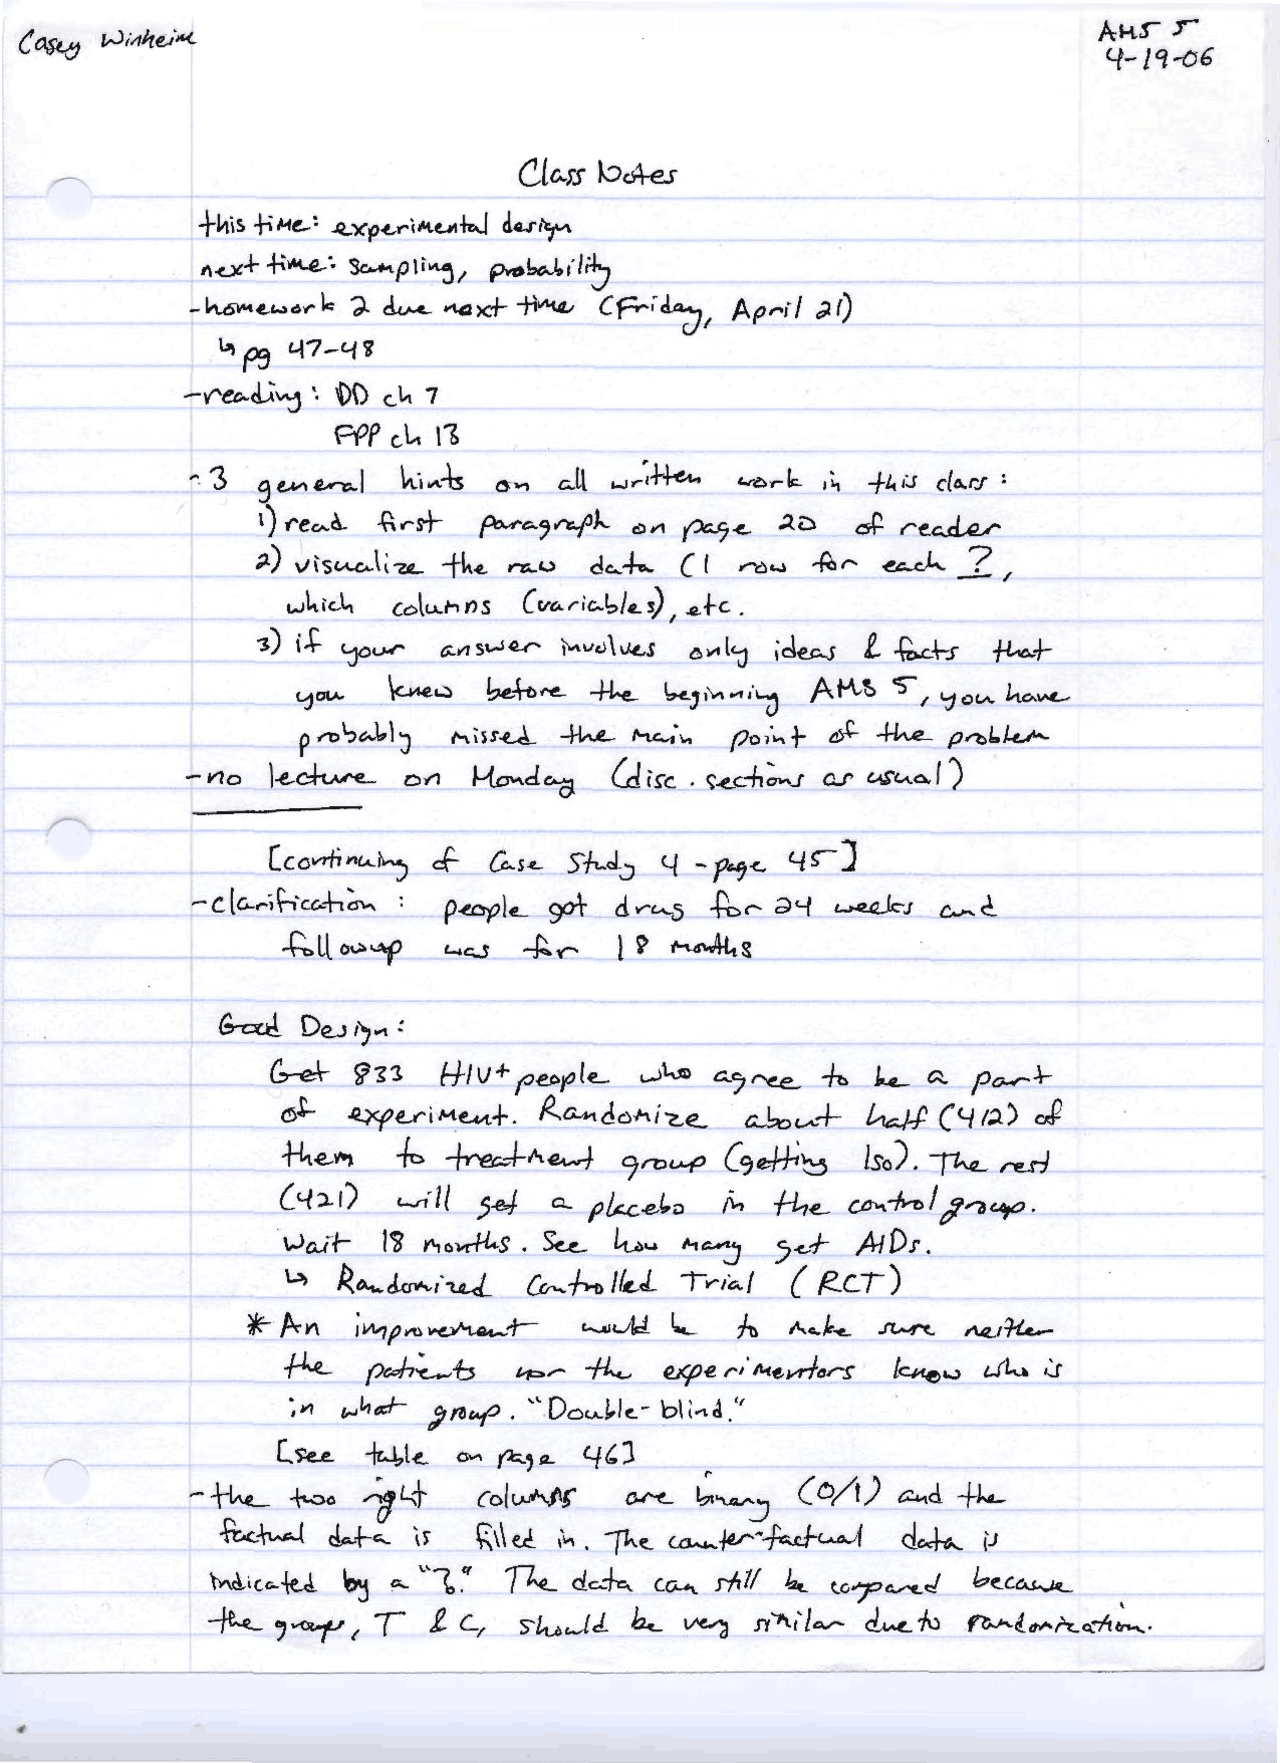 Casey Winheim
AMS 5
4-19-06
Class Notes
this time: experimental design
next time: sampling, probability
-homework 2 due next time (Friday, April 21)
↳ pg 47-48
-reading: DD ch 7
FPP ch 13
-3 general hints on all written work in this class:
1) read first paragraph on page 20 of reader
2) visualize the raw data (1 row for each ?,
which columns (variables), etc.
3) if your answer involves only ideas & facts that
you knew before the beginning AMS 5, you have
probably missed the main point of the problem
-no lecture on Monday (disc. sections as usual)
[continuing of Case Study 4 - page 45]
-clarification: people got drug for 24 weeks and
followup was for 18 months
Good Design:
Get 833 HIV+ people who agree to be a part
of experiment. Randomize about half (412) of
them to treatment group (getting Iso). The rest
(421) will get a placebo in the control group.
Wait 18 months. See how many get AIDs.
↳ Randomized Controlled Trial (RCT)
* An improvement would be to make sure neither
the patients nor the experimentors know who is
in what group. "Double-blind."
[see table on page 46]
-the two right columns are binary (0/1) and the
factual data is filled in. The counter-factual data is
indicated by a "?." The data can still be compared because
the groups, T & C, should be very similar due to randomization.